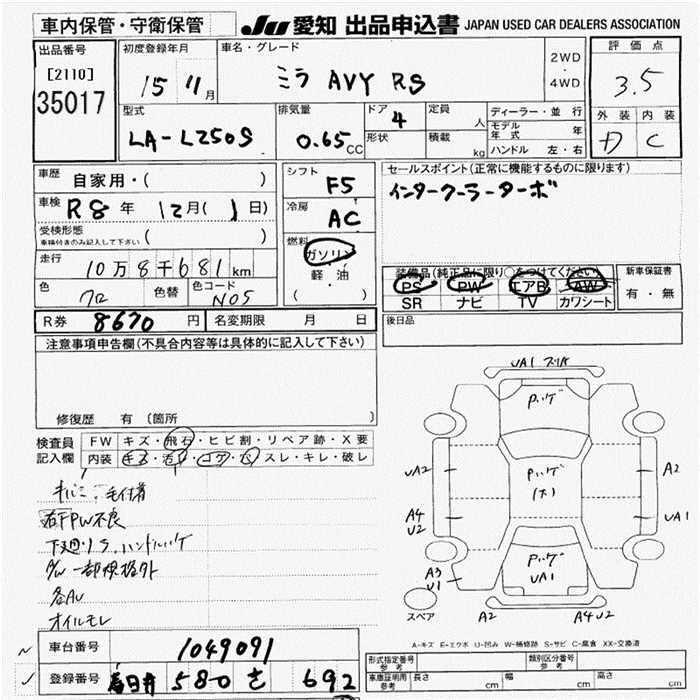 車内保管・守衛保管
JU 愛知 出品申込書 JAPAN USED CAR DEALERS ASSOCIATION
出品番号
[2110]
35017
初度登録年月
15 11月
車名・グレード
ミラ AVY RS
2WD
・
4WD
評価点
3.5
外装 内装
D C
型式
LA-L250S
排気量
0.65CC
ドア 4
形状
定員 人
積載 kg
ディーラー・並行
モデル年式 年
ハンドル 左・右
車歴 自家用・( )
車検 R8年 12月( 1日)
受検形態
車検付きのみ記入して下さい ( )
走行
10万8千681km
色 クロ 色替 色コード N05
シフト F5
冷房 AC
燃料 ガソリン
軽・油
( )
セールスポイント(正常に機能するものに限ります)
インタークーラーターボ
装備品(純正品に限り○をつけてください)
PS PW エアB AW
SR ナビ TV カワシート
新車保証書
有・無
R券 8670円 名変期限 月 日
後日品
注意事項申告欄(不具合内容等は具体的に記入して下さい)
修復歴 有 〔箇所 〕
検査員記入欄
FW キズ・飛石・ヒビ割・リペア跡・X要
内装 キズ・汚れ・コゲ・穴・スレ・キレ・破レ
右FPW不良
下廻りS、ハンドルハゲ
グレー部規格外
各AU
オイルモレ
UA1 スリK
Pハゲ
Pハゲ
(ホ)
Pハゲ
UA1
UA2
A4
U2
A3
U1
A2
UA1
スペア
A2
A4 U2
A-キズ E-エクボ U-凹み W-補修跡 S-サビ C-腐食 XX-交換済
車台番号 1049091
登録番号 春日井 580 さ 692
形式指定番号 参考
類別区分番号 参考
車庫証明用 参考 長さ cm 幅 cm 高さ cm